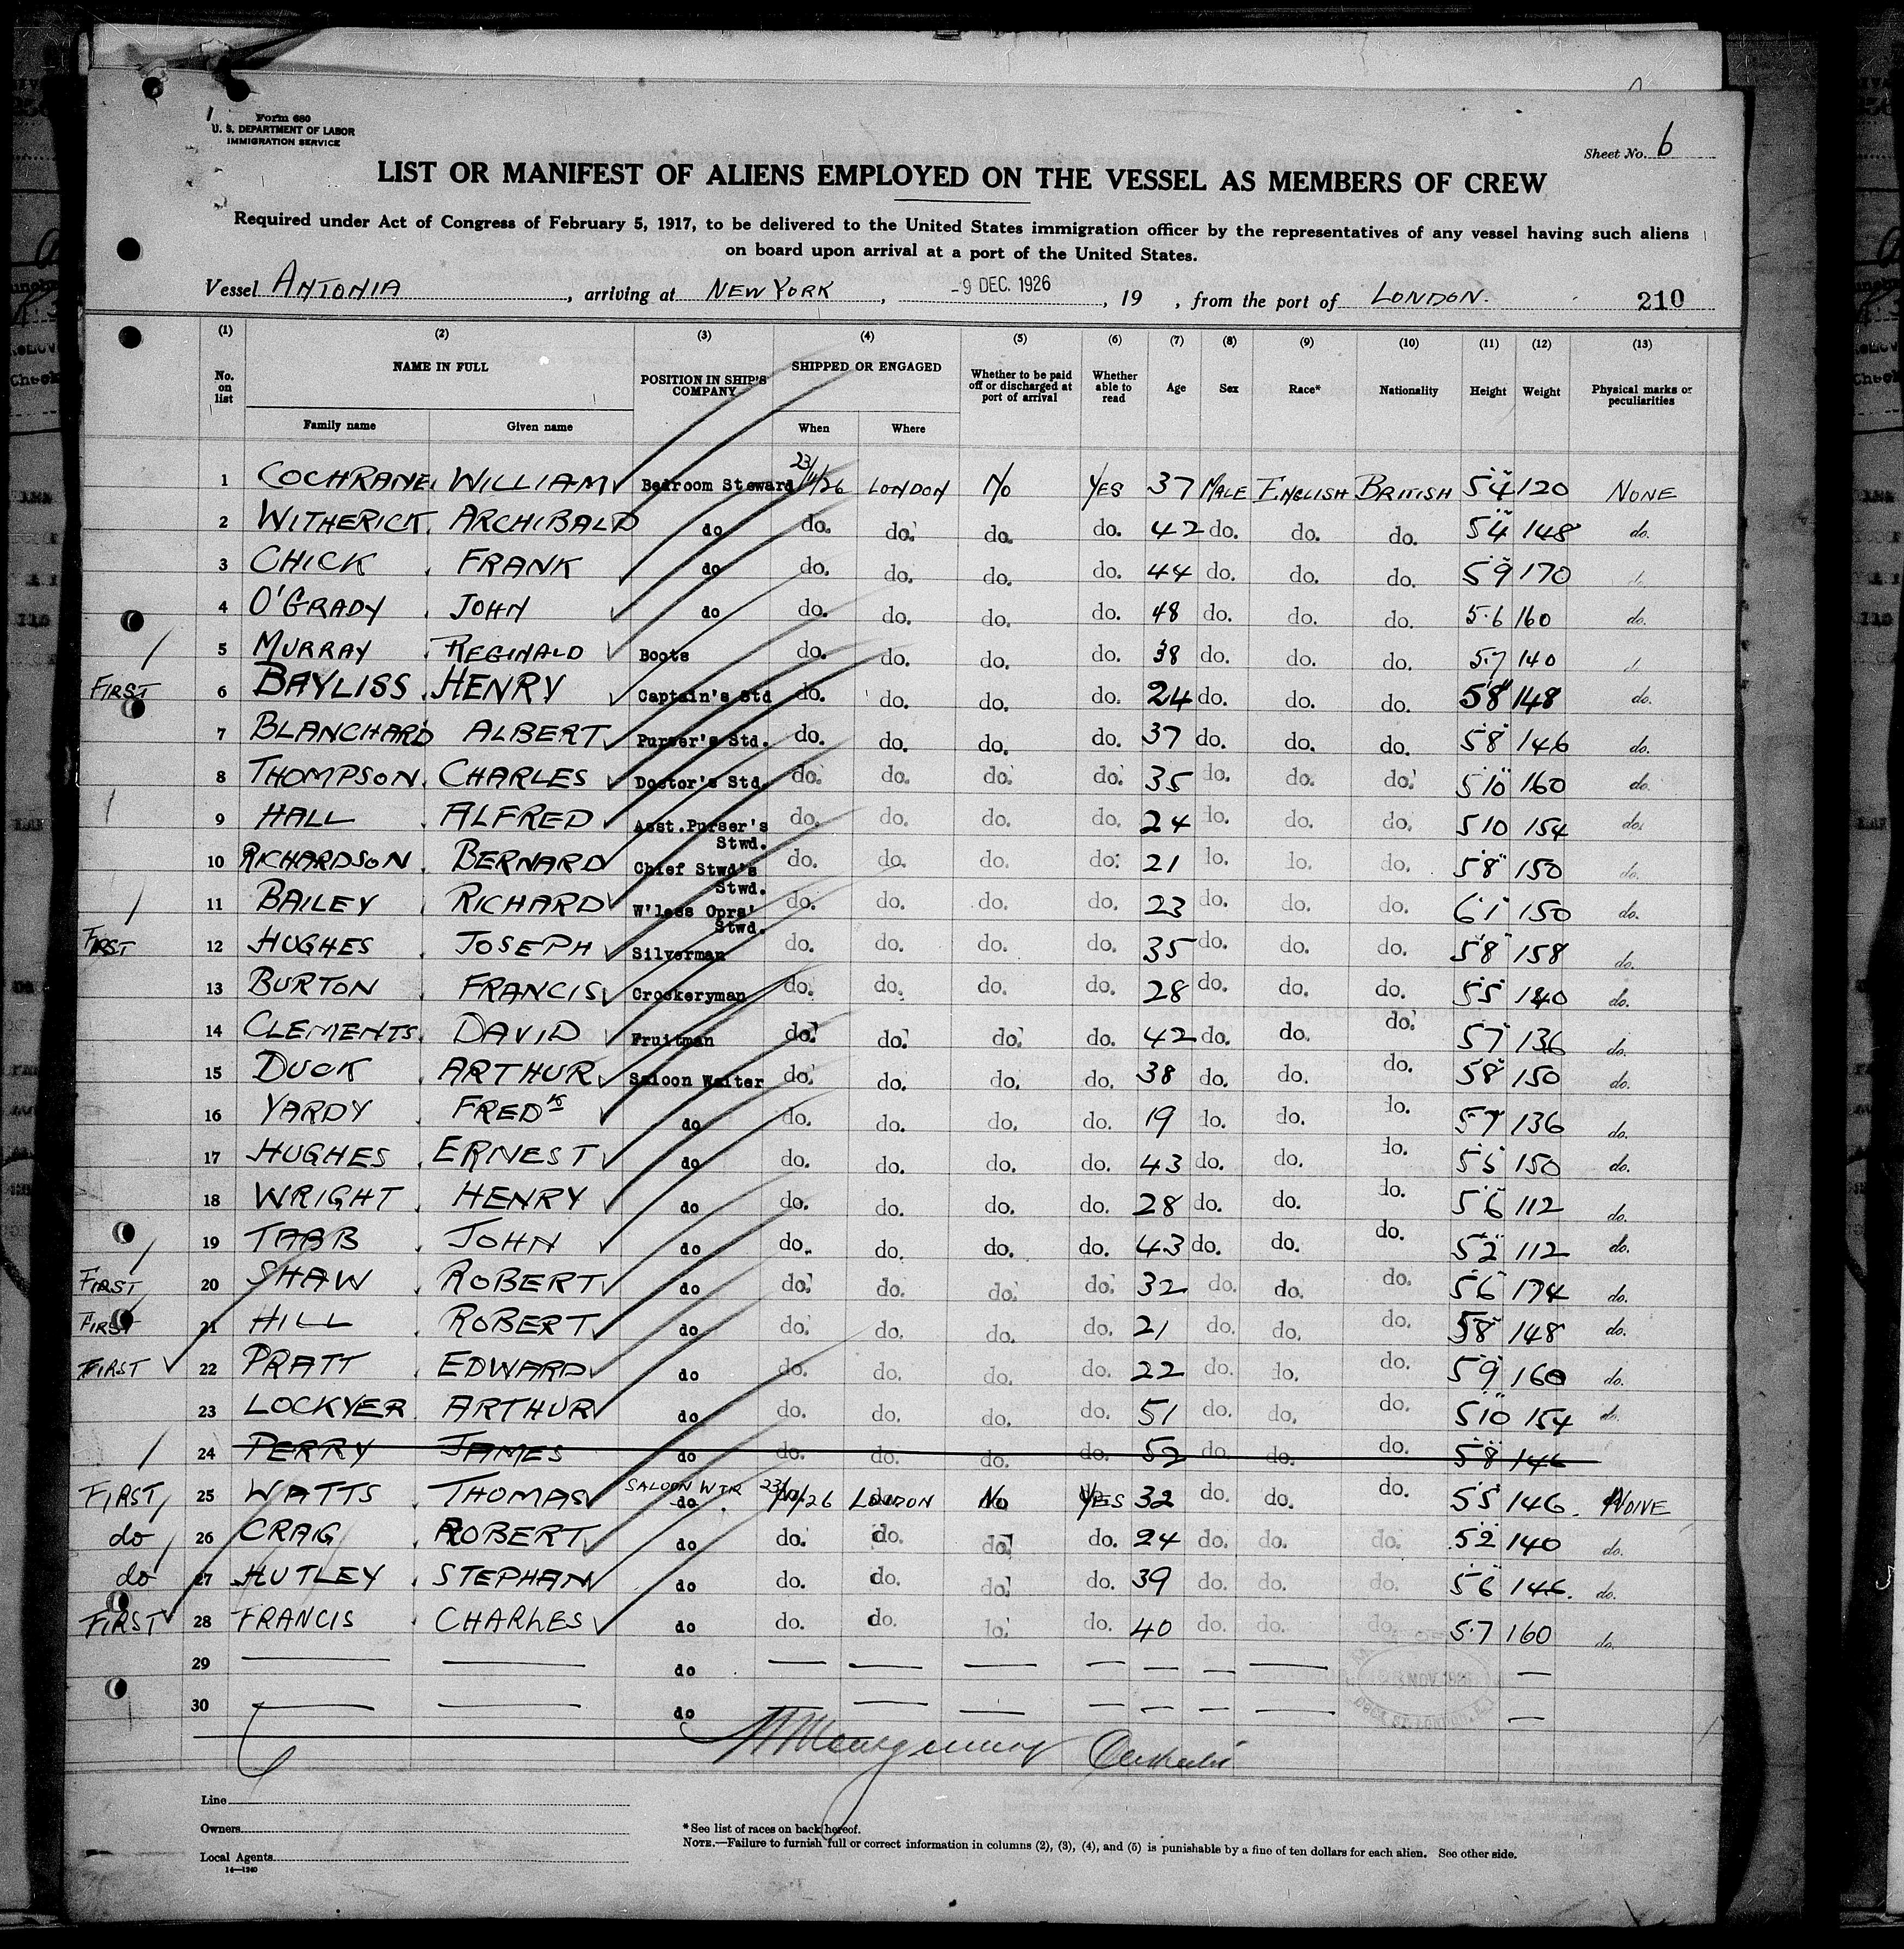 Form 680
U. S. DEPARTMENT OF LABOR
IMMIGRATION SERVICE
Sheet No. 6
LIST OR MANIFEST OF ALIENS EMPLOYED ON THE VESSEL AS MEMBERS OF CREW
Required under Act of Congress of February 5, 1917, to be delivered to the United States immigration officer by the representatives of any vessel having such aliens
on board upon arrival at a port of the United States.
Vessel ANTONIA, arriving at NEW YORK, -9 DEC. 1926, 19 , from the port of LONDON. 210
(1) (2) (3) (4) (5) (6) (7) (8) (9) (10) (11) (12) (13)
No. on list NAME IN FULL Family name Given name POSITION IN SHIP'S COMPANY SHIPPED OR ENGAGED When Where Whether to be paid off or discharged at port of arrival Whether able to read Age Sex Race* Nationality Height Weight Physical marks or peculiarities
1 COCHRANE, WILLIAM Bedroom Steward 23/11/26 LONDON No YES 37 MALE ENGLISH BRITISH 5'4" 120 NONE
2 WITHERICK, ARCHIBALD do do. do. do. do. 42 do. do. do. 5'4" 148 do.
3 CHICK, FRANK do do. do. do. do. 44 do. do. do. 5'9" 170 do.
4 O'GRADY, JOHN do do. do. do. do. 48 do. do. do. 5.6 160 do.
5 MURRAY, REGINALD Boots do. do. do. do. 38 do. do. do. 5.7 140
FIRST 6 BAYLISS, HENRY Captain's Std do. do. do. do. 24 do. do. do. 5'8" 148 do.
7 BLANCHARD ALBERT Purser's Std. do. do. do. do. 37 do. do. do. 5'8" 146 do.
8 THOMPSON, CHARLES Doctor's Std. do. do. do. do. 35 do. do. do. 5'10" 160 do.
9 HALL, ALFRED Asst.Purser's Stwd. do. do. do. do. 24 do. do. do. 5 10 154 do.
10 RICHARDSON, BERNARD Chief Stwd's Stwd. do. do. do. do. 21 do. do. do. 5'8" 150 do.
11 BAILEY, RICHARD W'less Oprs' Stwd. do. do. do. do. 23 do. do. do. 6'1" 150 do.
FIRST 12 HUGHES, JOSEPH Silverman do. do. do. do. 35 do. do. do. 5'8" 158 do.
13 BURTON, FRANCIS Crockeryman do. do. do. do. 28 do. do. do. 5'5" 140 do.
14 CLEMENTS, DAVID Fruitman do. do. do. do. 42 do. do. do. 5'7" 136 do.
15 DUCK, ARTHUR Saloon Waiter do. do. do. do. 38 do. do. do. 5'8" 150 do.
16 YARDY, FREDK do do. do. do. do. 19 do. do. do. 5'7" 136 do.
17 HUGHES, ERNEST do do. do. do. do. 43 do. do. do. 5'5" 150 do.
18 WRIGHT, HENRY do do. do. do. do. 28 do. do. do. 5'6" 112 do.
19 TABB, JOHN do do. do. do. do. 43 do. do. do. 5'2" 112 do.
FIRST 20 SHAW, ROBERT do do. do. do. do. 32 do. do. do. 5'6" 174 do.
FIRST 21 HILL, ROBERT do do. do. do. do. 21 do. do. do. 5'8" 148 do.
FIRST 22 PRATT, EDWARD do do. do. do. do. 22 do. do. do. 5'9" 160 do.
23 LOCKYER, ARTHUR do do. do. do. do. 51 do. do. do. 5'10" 154 do.
24 PERRY JAMES do do. do. do. do. 52 do. do. do. 5'8" 146
FIRST 25 WATTS, THOMAS SALOON WTR do 23/11/26 LONDON No YES 32 do. do. do. 5'5" 146. NONE
do 26 CRAIG, ROBERT do do. do. do. do. 24 do. do. do. 5'2" 140 do.
do 27 HUTLEY, STEPHAN do do. do. do. do. 39 do. do. do. 5'6" 146. do.
FIRST 28 FRANCIS, CHARLES do do. do. do. do. 40 do. do. do. 5.7 160 do.
29 do
30 do
Montgomery
Line
Owners
Local Agents
14—1240
* See list of races on back hereof.
NOTE.—Failure to furnish full or correct information in columns (2), (3), (4), and (5) is punishable by a fine of ten dollars for each alien. See other side.